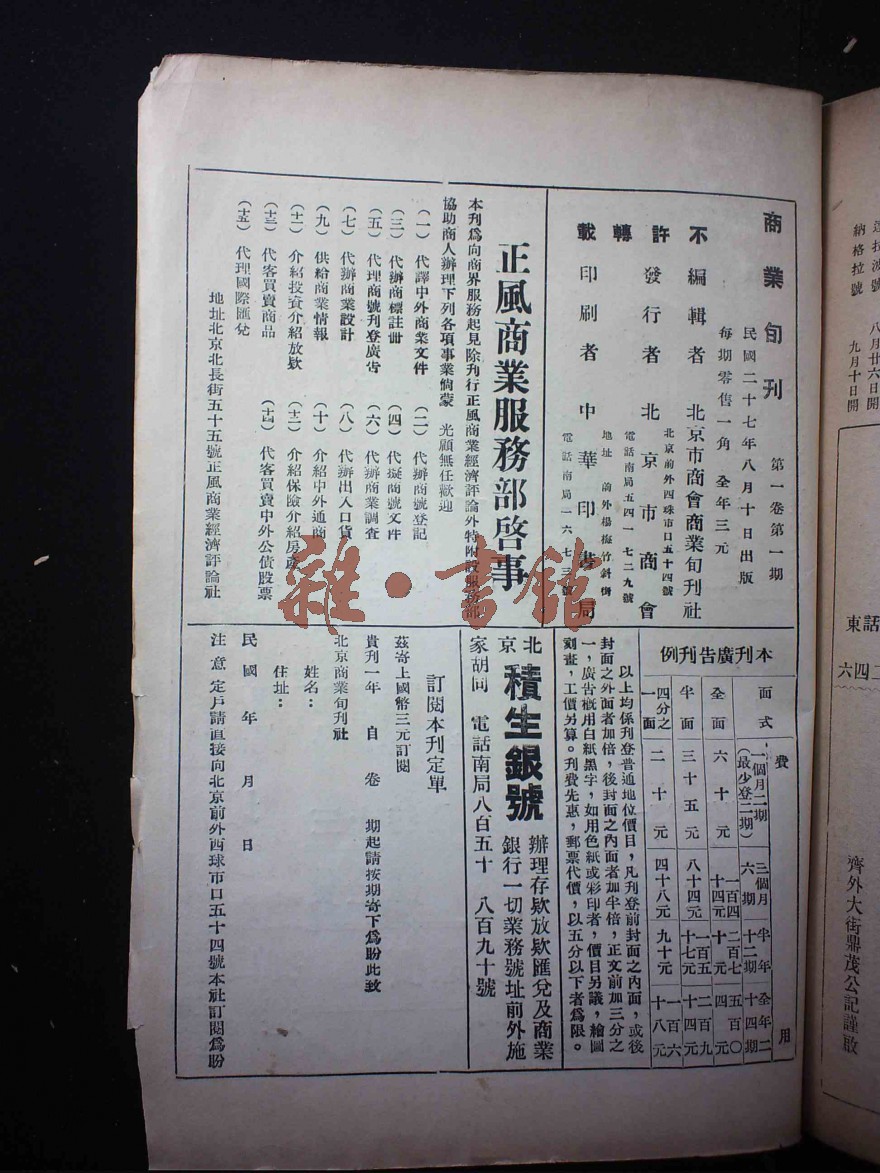 商業旬刊　第一卷第一期
民國二十七年八月十日出版
每期零售一角　全年三元
不許轉載
編輯者　北京市商會商業旬刊社
北京前外西珠市口五十四號
發行者　北京市商會
電話南局五四一　七二九號
地址　前外楊梅竹斜街
印刷者　中華印書局
電話南局一六七三號
正風商業服務部啓事
本刊爲向商界服務起見除刋行正風商業經濟評論外特附設服務部
協助商人辦理下列各項事業倘蒙　光顧無任歡迎
（一）代譯中外商業文件　（二）代辦商號登記
（三）代辦商標註册　（四）代擬商號文件
（五）代理商號刋登廣告　（六）代辦商業調查
（七）代辦商業設計　（八）代辦出入口貨
（九）供給商業情報　（十）介紹中外通商
（十一）介紹投資介紹放欵　（十二）介紹保險介紹房產
（十三）代客買賣商品　（十四）代客買賣中外公債股票
（十五）代理國際匯兌
地址北京北長街五十五號正風商業經濟評論社
本刋廣告刋例
面式　費用
一個月二期（最少登二期）　三個月六期　半年十二期　全年二十四期
全面　六十元　一百四十四元　二百七十元　五百〇四元
半面　三十五元　八十四元　一百五十七元　二百九十四元
四分之一面　二十元　四十八元　九十元　一百六十八元
以上均係刋登普通地位價目，凡刋登前封面之內面，或後
封面之外面者加倍，後封面之內面者加半倍，正文前加三分之
一，廣告概用白紙黑字，如用色紙或彩印者，價目另議，繪圖
刻畫，工價另算。刋費先惠，郵票代價，以五分以下者爲限。
北京　積生銀號　辦理存欵放欵匯兌及商業
銀行一切業務號址前外施
家胡同　電話南局八百五十　八百九十號
訂閱本刋定單
茲寄上國幣三元訂閱
貴刋一年　自　卷　期起請按期寄下爲盼此致
北京商業旬刋社
姓名：
住址：
民國　年　月　日
注意　定戶請直接向北京前外西珠市口五十四號本社訂閱爲盼
雜·書館
納格拉號　九月十日開
八月廿六日開
話東
二四六
齊外大街鼎茂公記謹啟